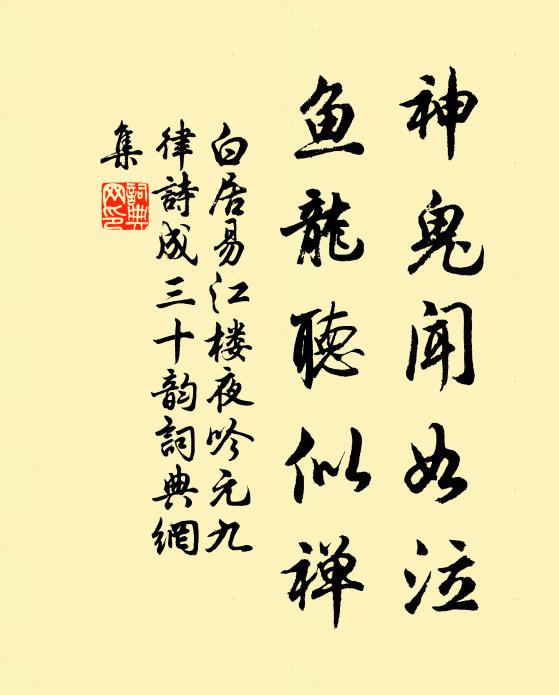 神鬼聞如泣
鱼龍聽似禅
白居易江楼夜吟元九
律詩成三十韵詞典網
集
詞典
网印